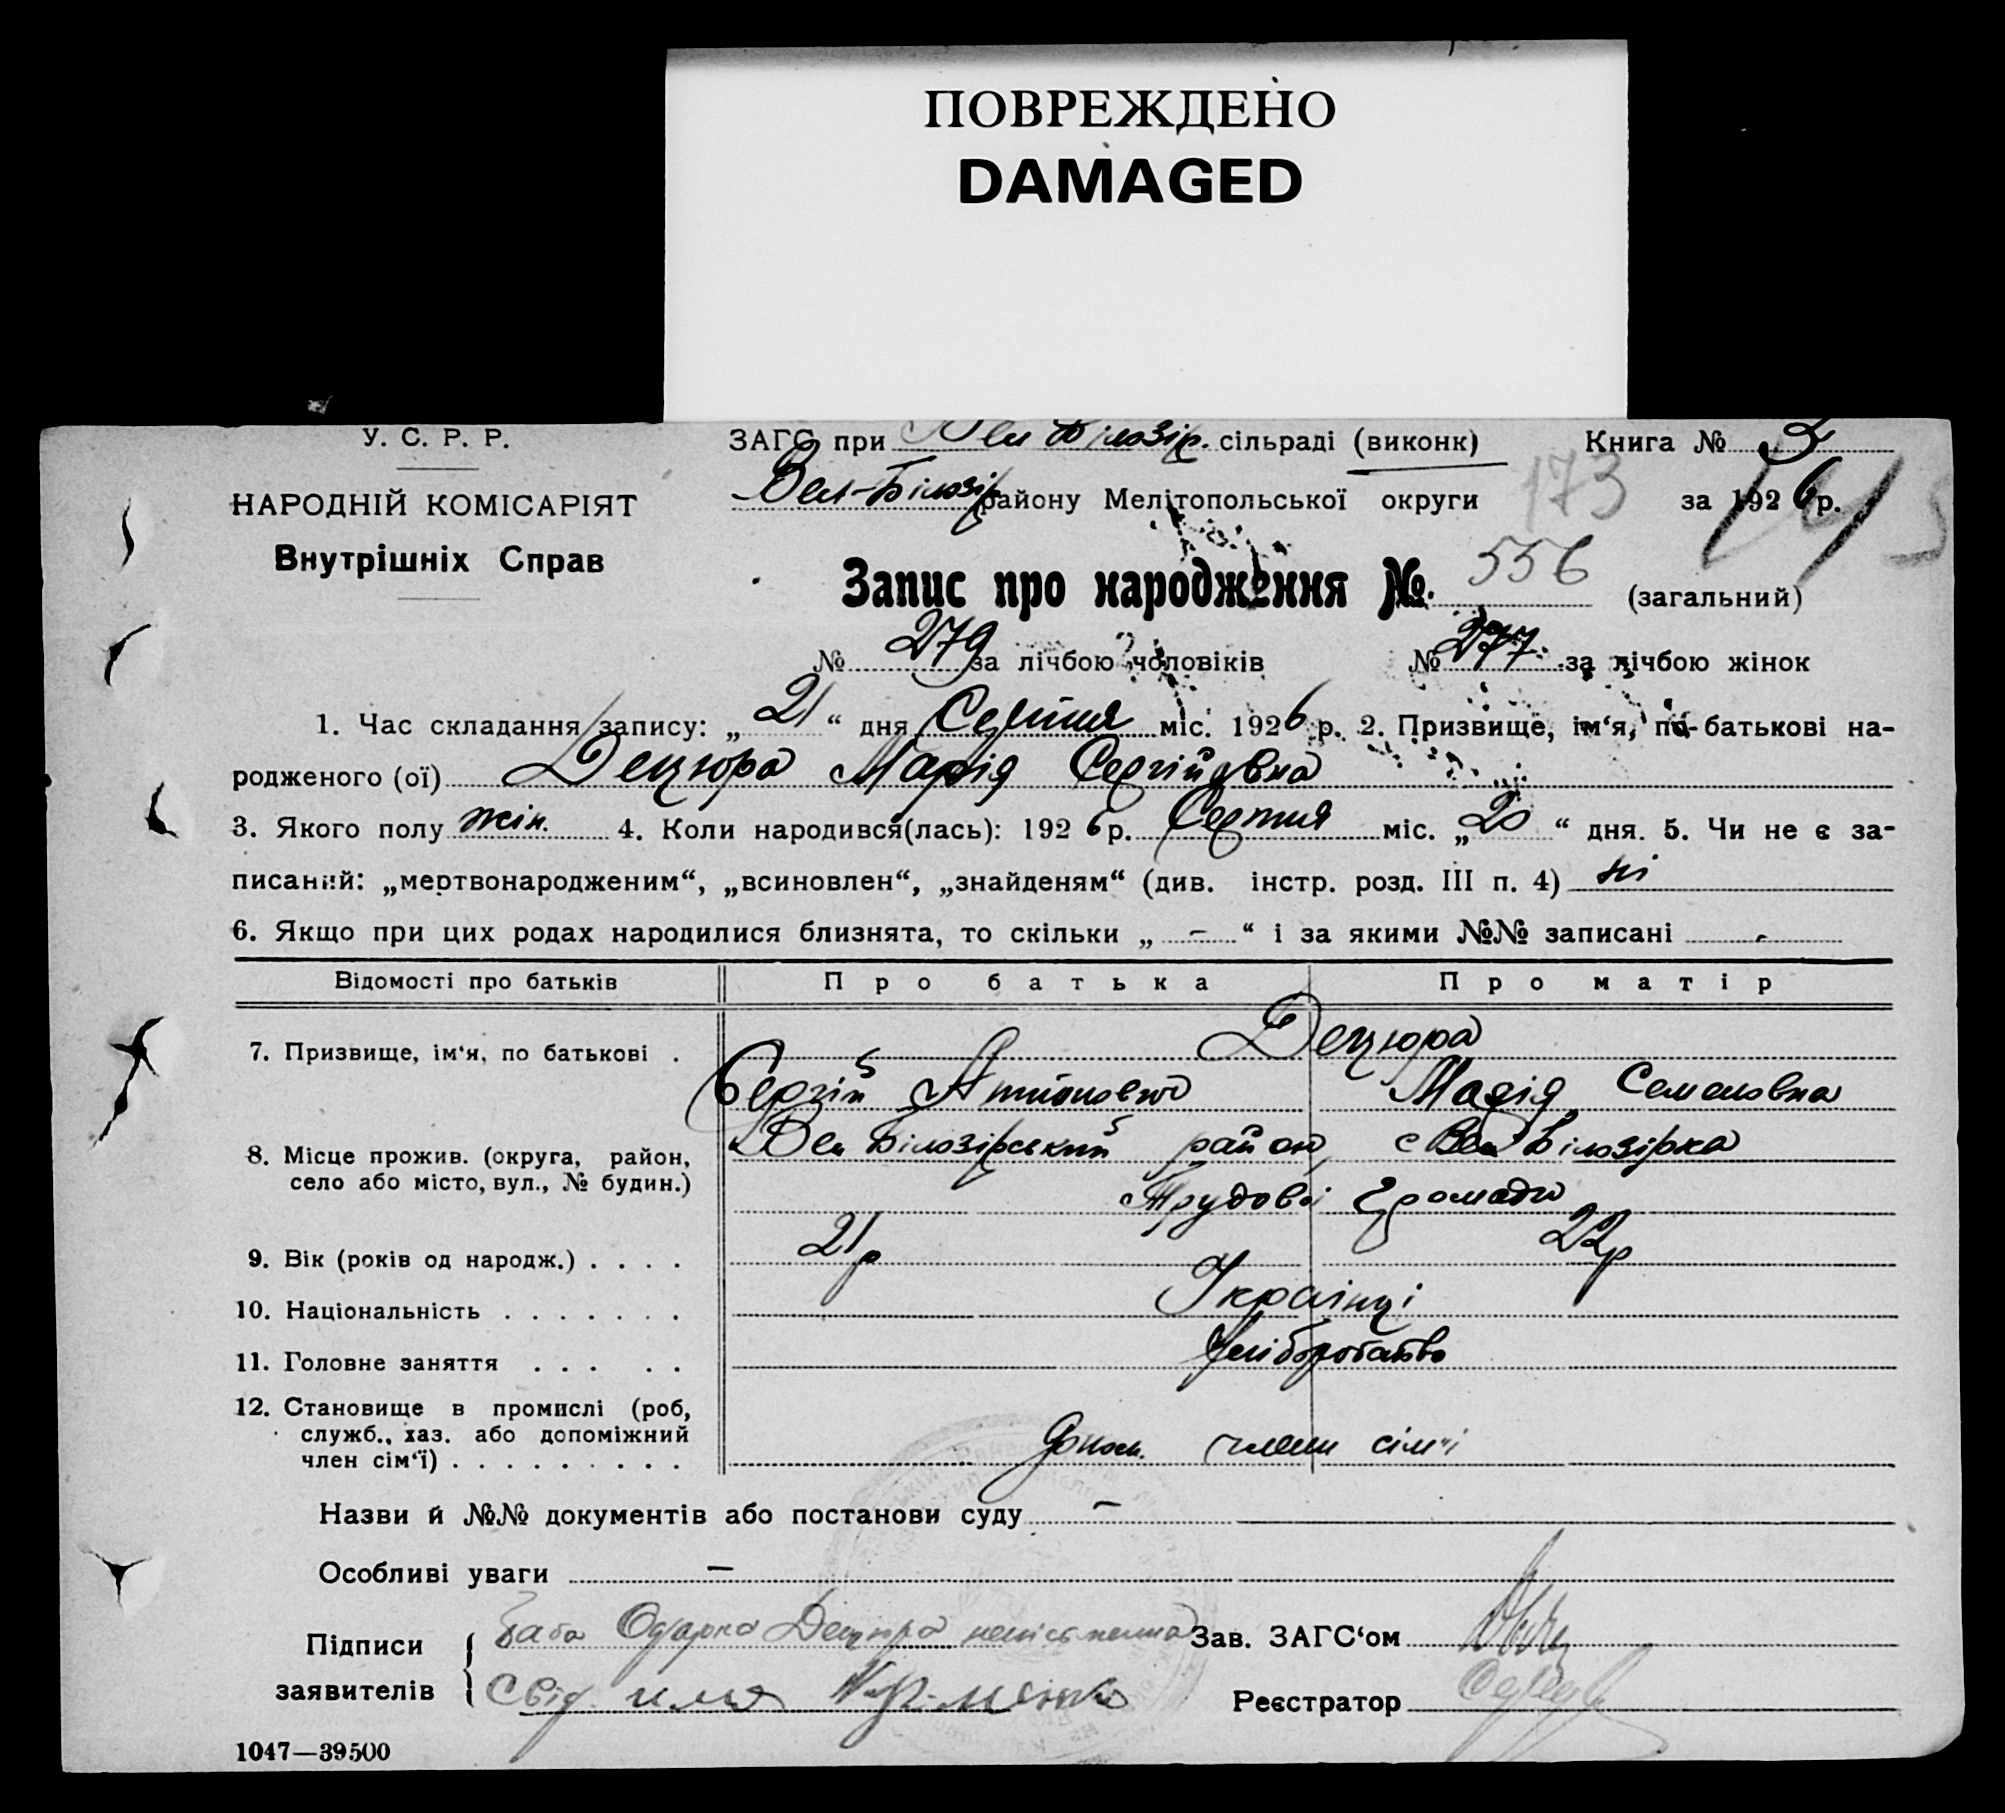 ПОВРЕЖДЕНО
DAMAGED
У. С. Р. Р.
НАРОДНІЙ КОМІСАРІЯТ
Внутрішніх Справ
ЗАГС при Вел Білозір. сільраді (виконк) Книга № 5
Вел-Білозір району Мелітопольської округи 173 за 1926 р.
Запис про народження №. 556 (загальний)
№ 279 за лічбою чоловіків № 277 за лічбою жінок
1. Час складання запису: „21“ дня Серпня міс. 1926 р. 2. Призвище, ім‘я, по-батькові на-
родженого (ої) Децюра Марія Сергійовна
3. Якого полу жін. 4. Коли народився(лась): 1926 р. Серпня міс. „20“ дня. 5. Чи не є за-
писаний: „мертвонародженим“, „всиновлен“, „знайденям“ (див. інстр. розд. III п. 4) ні
6. Якщо при цих родах народилися близнята, то скільки „ - “ і за якими №№ записані -
Відомості про батьків Про батька Про матір
7. Призвище, ім‘я, по батькові . Децюра
Сергій Марія Семеновна
8. Місце прожив. (округа, район, село або місто, вул., № будин.) Вел Білозірський район с Вел Білозірка
Трудової Громади
9. Вік (років од народж.) . . . . 21 р 22 р
10. Національність . . . . . . . Українці
11. Головне заняття . . . . . Хліборобство
12. Становище в промислі (роб, служб., хаз. або допоміжний член сім‘ї) . . . . . . . . . члени сім'ї
Назви й №№ документів або постанови суду -
Особливі уваги -
Підписи заявителів { Баба Одарка Децюра неписьменна Зав. ЗАГС‘ом
Свід. Реєстратор
1047—39500